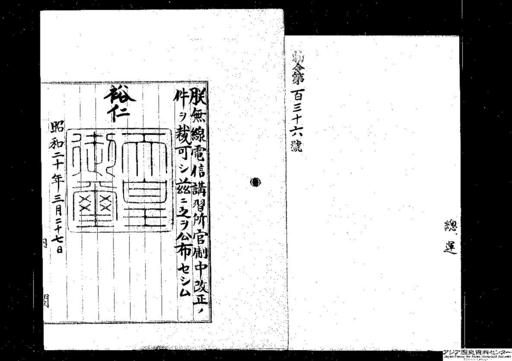 勅令第百三十六號
總運
朕無線電信講習所官制中改正ノ
件ヲ裁可シ茲ニ之ヲ公布セシム
裕仁
天皇御璽
昭和二十年三月二十七日
内
閣
アジア歴史資料センター